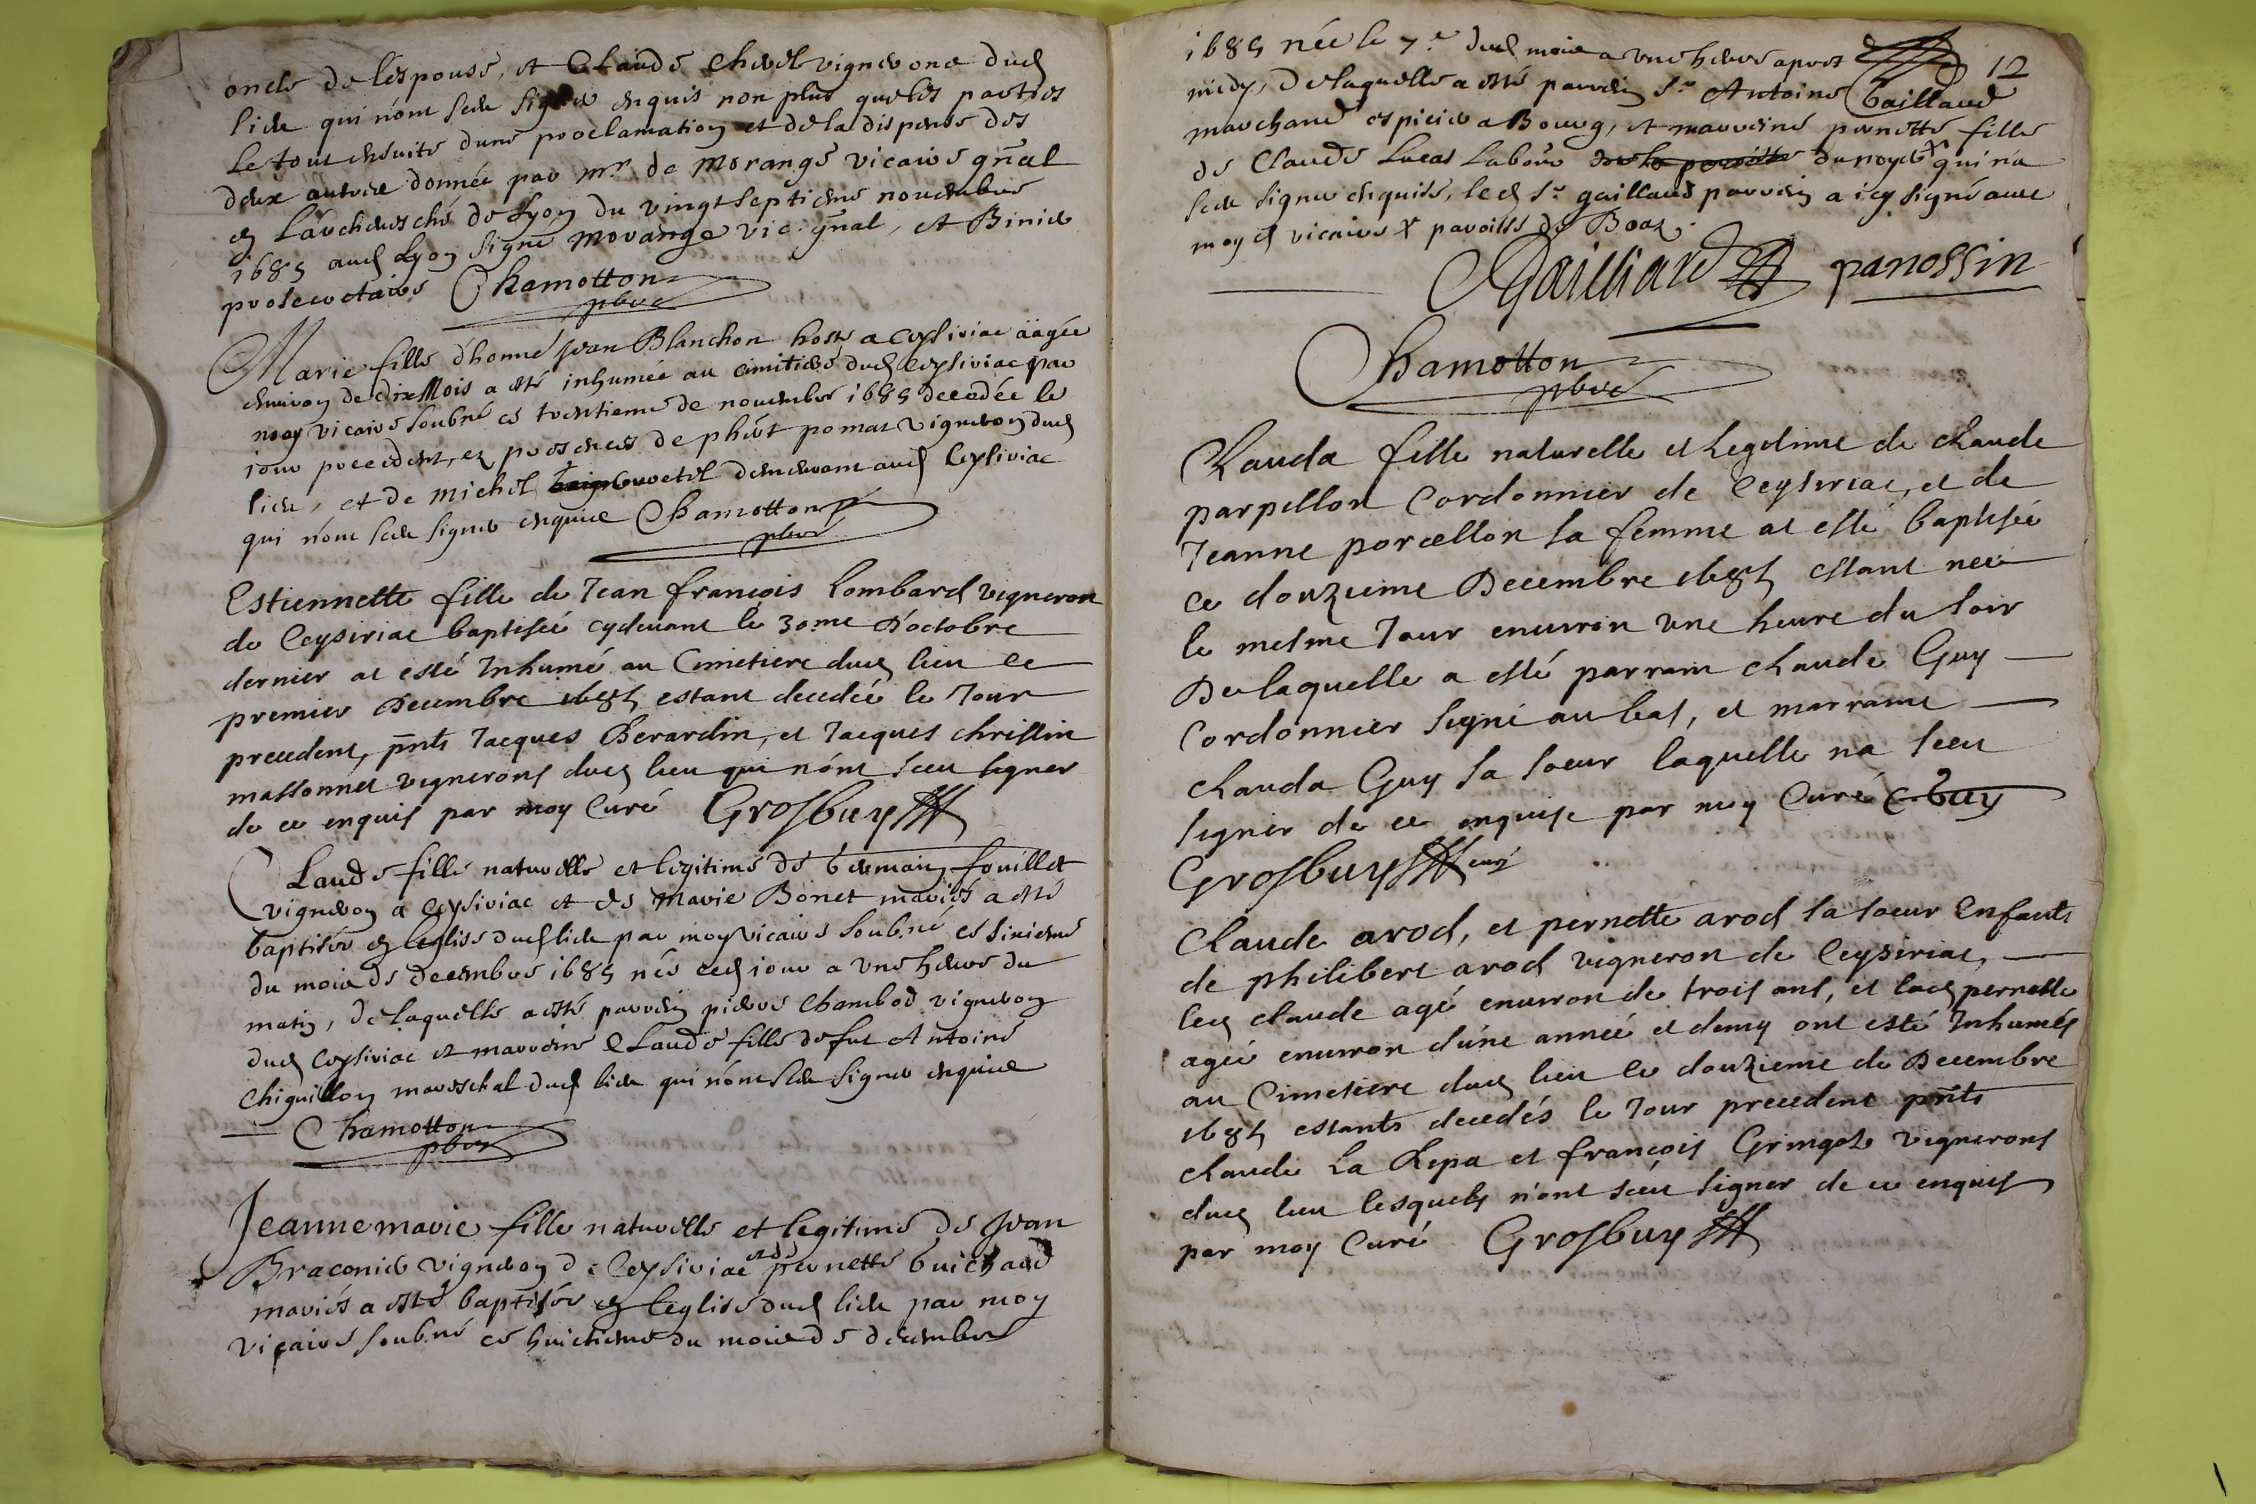 oncle de l'espouse, et Claude Chevel vignerons dud
lieu qui n'ont sceu signer enquis non plus que les parties
le tout ensuite d'une proclamation et de la dispense des
deux autres donnée par mr de Morange vicaire gñal
en l'archevesché de Lyon du vingt septieme novembre
1685 aud Lyon signé Morange vic. gñal, et Binier
prosecretaire Chamotton
pbre
Marie fille d'honné Jean Blanchon hoste a Ceysiriac äagée
environ de dix Mois a esté inhumee au cimitiere dud Ceysiriac par
moy vicaire soubné ce trentieme de novembre 1685 decedée le
jour precedent, en presences de phbert pomat vigneron dud
lieu, et de michel demeurant aud Ceysiriac
qui n'ont sceu signer enquis Chamotton
pbre
Estiennette fille de Jean françois Lombard vigneron
de Ceysiriac baptisée cydevant le 30me d'octobre
dernier at esté Inhumé au Cimetiere dud lieu ce
premier Decembre 1685 estant decedée le Jour
precedent, pñts Jacques Berardin, et Jacques christin
massonnet vignerons dud lieu qui n'ont sceu signer
de ce enquis par moy Curé Grosbuy
Claude fille naturelle et legitime de Germain fouillet
vigneron a Ceysiriac et de Marie Bonet mariés a esté
baptisée en leglise dud lieu par moy vicaire soubné ce sixieme
du mois de decembre 1685 née ced jour a une heure du
matin, de laquelle a esté parrein pierre Chambod vigneron
dud Ceysiriac et marreine Claude fille de fut Antoine
Chiquillon mareschal dud lieu qui n'ont sceu signer enquis
Chamotton
pbre
Jeanne marie fille naturelle et legitime de Jean
Braconier vigneron de Ceysiriac et de pernette Guichard
mariés a esté baptisée en leglise dud lieu par moy
vicaire soubné ce huictieme du mois de decembre
12
1685 née le 7e dud mois a une heure apres
midy, de laquelle a esté parrein sr Antoine Gaillard
marchand espicier a Bourg, et marreine pernette fille
de Claude Lucas Labour du noyer qui n'a
sceu signer enquise, led sr gaillard parrein a icy signé avec
moy d vicaire x paroisse de Boaz.
Gailliard panossin
Chamotton
pbre
Clauda fille naturelle et Legitime de Claude
parpellon Cordonnier de Ceysiriac, et de
Jeanne porcellon sa femme at esté baptisée
ce douzieme Decembre 1685 estant neé
le mesme Jour environ une heure du soir
De laquelle a esté parrain claude Guy
Cordonnier signé au bas, et marraine
Clauda Guy sa soeur laquelle na sceu
signer de ce enquise par moy Curé C Guy
Grosbuy curé
Claude arod, et pernette arod sa soeur Enfants
de philibert arod vigneron de Ceysiriac,
led claude agé environ de trois ans, et lad pernette
agée environ d'une année et demy ont esté Inhumés
au Cimetiere dud lieu ce douzieme de Decembre
1685 estants decedés le Jour precedent pñts
claude La Repa et françois Gringoz vignerons
dud lieu lesquels n'ont sceu signer de ce enquis
par moy Curé Grosbuy